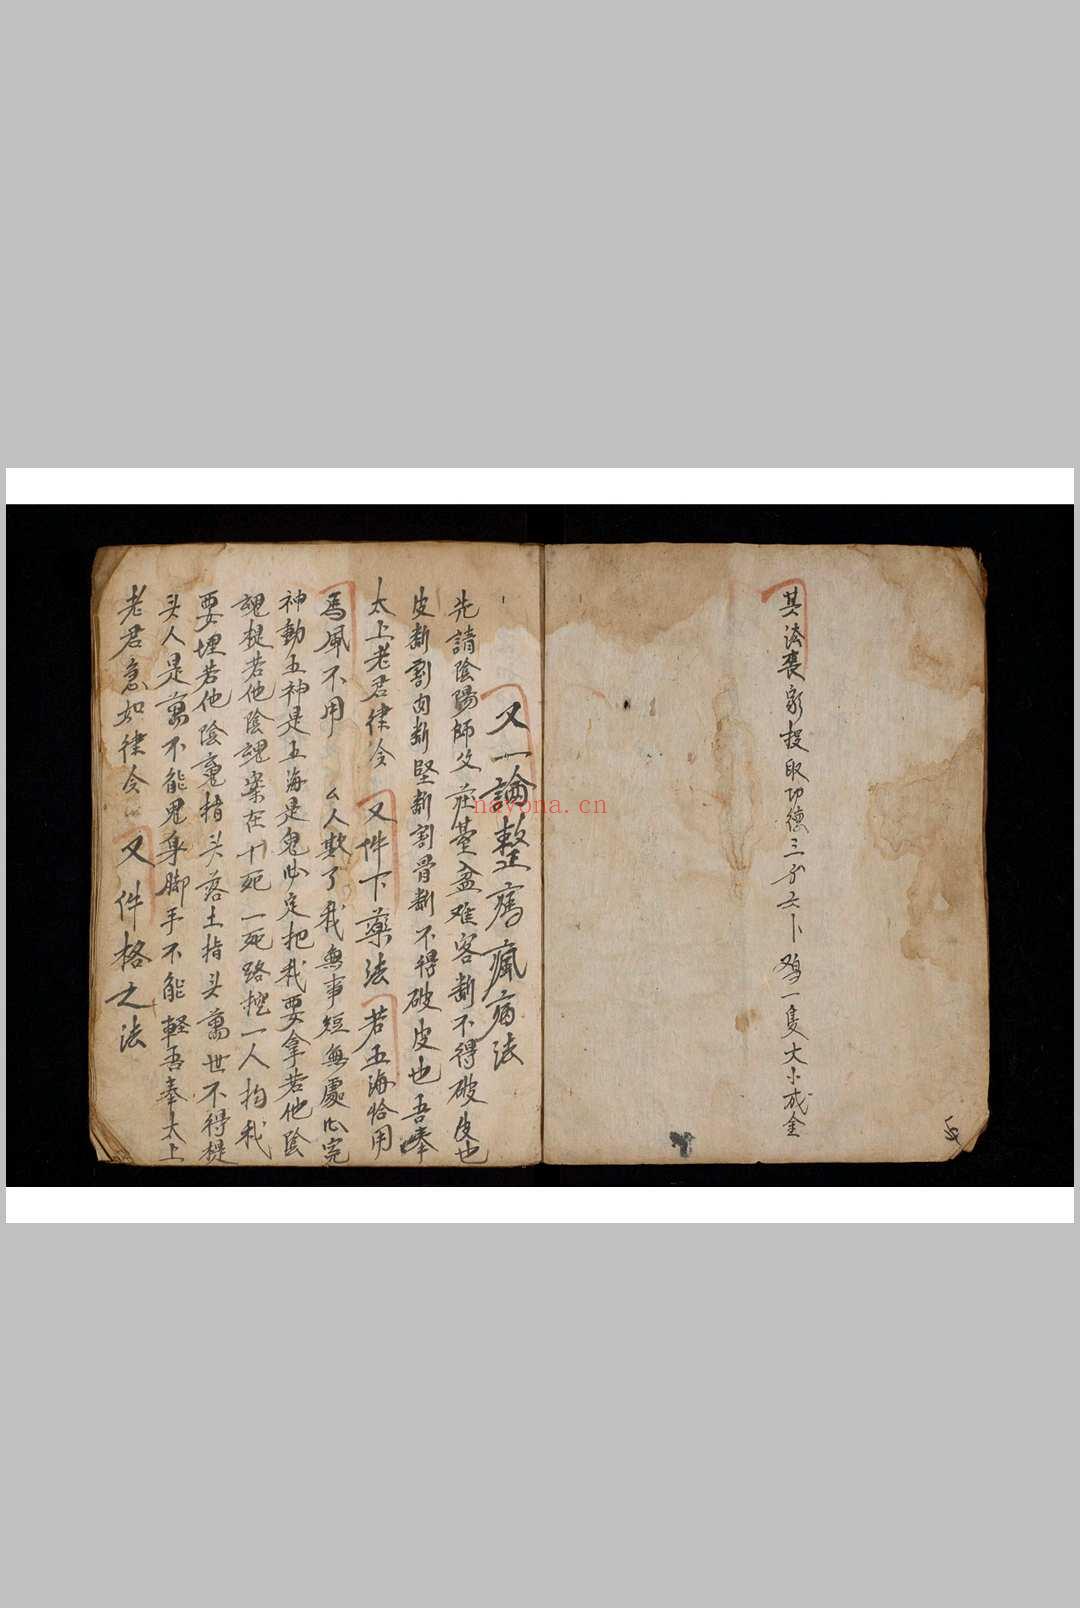 其法喪家投取功德三分六卜鸡一隻大小戒金
又一論整瘋病法
先請陰陽師父在臺盆难客断不得破皮也
皮断割肉断堅断割骨断不得破皮也吾奉
太上老君律令 又件下藥法 若五海恰用
馬風不用 厶人欺了我無事短無處心完
神動五神是五海是鬼必定把我要拿若他陰
魂提若他陰魂案在十死一死路挖一人拘我
要埋若他陰魂指头落土指头萬世不得提
头人是萬不能鬼身脚手不能軽吾奉太上
老君急如律令 又件格之法
navona.cn